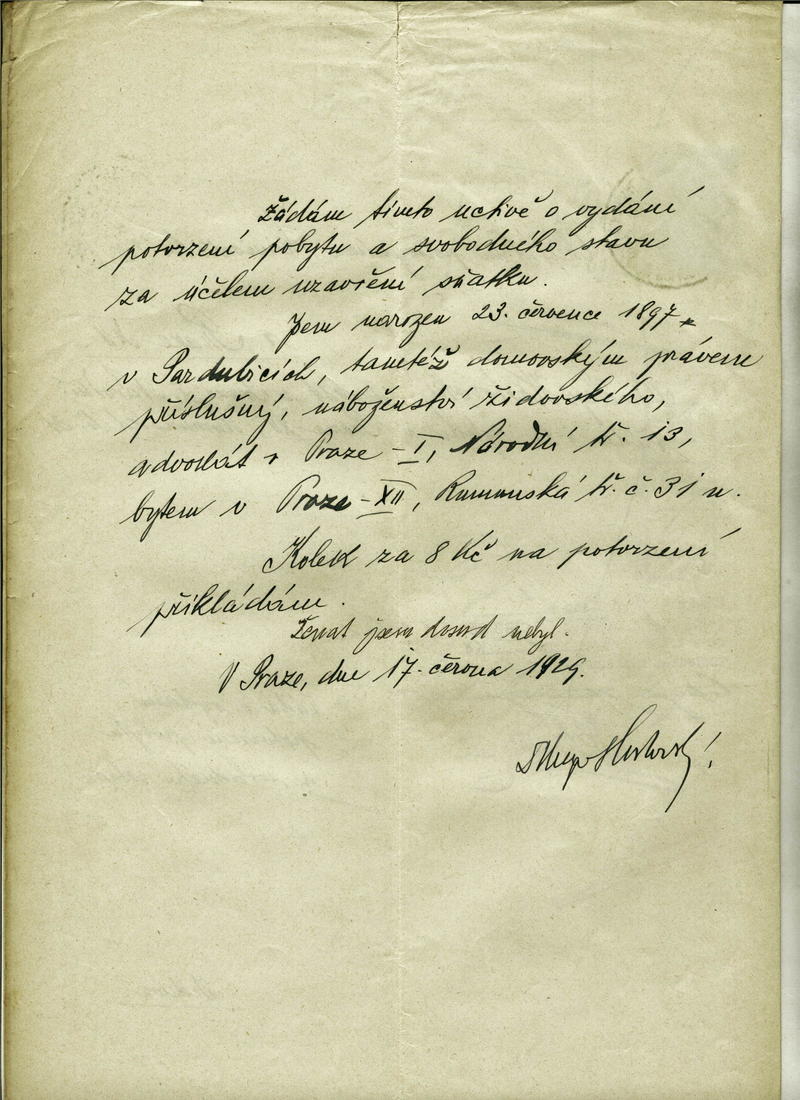 Žádám tímto uctivě o vydání
potvrzení pobytu a svobodného stavu
za účelem uzavření sňatku.
Jsem narozen 23. července 1897
v Pardubicích, tamtéž domovským právem
příslušný, náboženství židovského,
advokát v Praze - I, Národní tř. 13,
bytem v Praze - XII, Rumunská tř. č. 31 n.
Kolek za 8 Kč na potvrzení
přikládám.
Ženat jsem dosud nebyl.
V Praze, dne 17. června 1929.